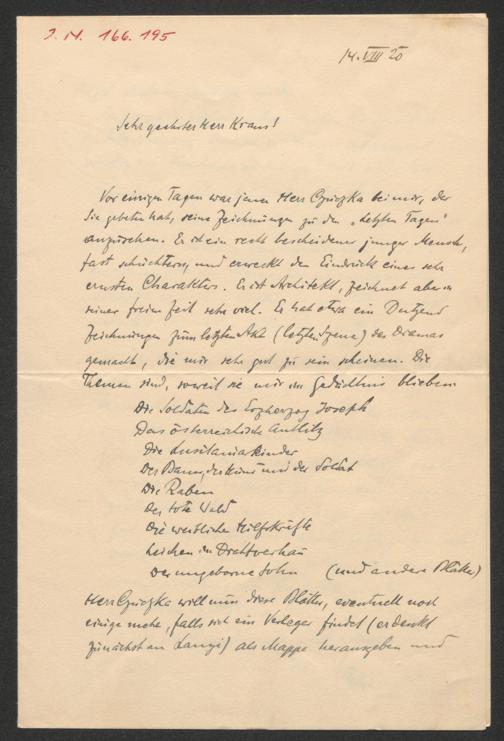 J. N. 166.195
14. VIII 20
Sehr geehrter Herr Kraus!
Vor einigen Tagen war jener Herr bei mir, der
Sie gebeten hat, seine Zeichnungen zu den „Letzten Tagen"
anzusehen. Er ist ein recht bescheidener junger Mensch,
fast schüchtern, und erweckt den Eindruck eines sehr
ernsten Charakters. Er ist Architekt, zeichnet aber in
seiner freien Zeit sehr viel. Er hat etwa ein Dutzend
Zeichnungen zum letzten Akt (letzte Szene) des Dramas
gemacht, die mir sehr gut zu sein scheinen. Die
Themen sind, soweit sie mir im Gedächtnis blieben:
Die Soldaten des Erzherzog Joseph
Das österreichische Antlitz
Die Lusitaniakinder
Der Baum, der und der Soldat
Die Raben
Der tote Wald
Die weiblichen Hilfskräfte
Leichen im Drahtverhau
Der ungeborne Sohn (und andere Blätter)
Herr will nun diese Blätter, eventuell noch
einige mehr, falls sich ein Verleger findet (er denkt
zunächst an Lanyi) als Mappe herausgeben und